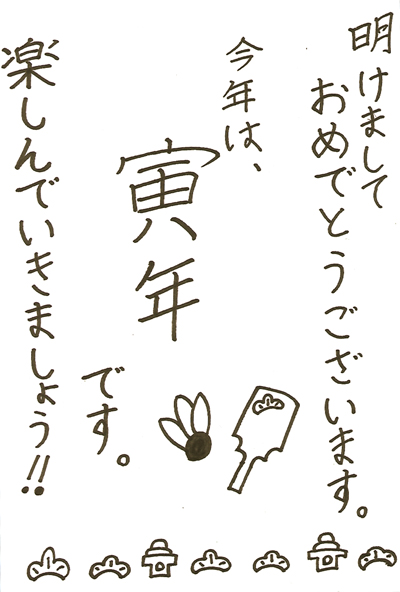 明けまして
おめでとうございます。
今年は、
寅年
です。
楽しんでいきましょう!!